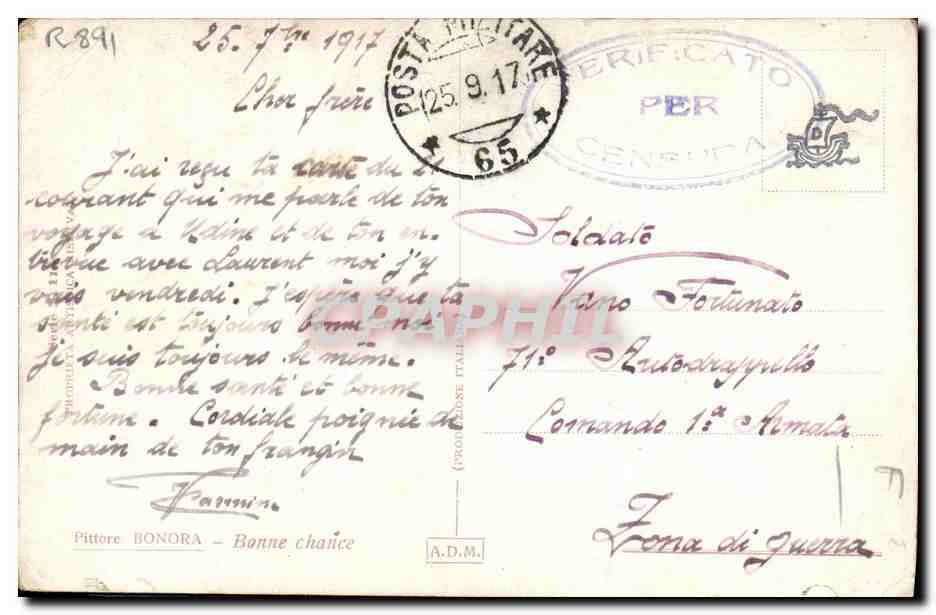 R891
25. 7bre 1917
Cher frère
J'ai reçu ta carte du 21
courant qui me parle de ton
voyage a Udine et de ton en-
trevue avec Laurent moi j'y
vais vendredi. J'espère que ta
santé est toujours bonne moi
je suis toujours le même.
Bonne santé et bonne
fortune. Cordiale poignée de
main de ton frangin
Pittore BONORA – Bonne chance
PROPRIETÀ ARTISTICA RISERVATA
(PRODUZIONE ITALIANA)
A.D.M.
POSTA MILITARE
25.9.17
65
VERIFICATO
PER
CENSURA
D
Soldato
Vano Fortunato
71° Autodrappello
Comando 1ª Armata
Zona di guerra
CPAPHIL